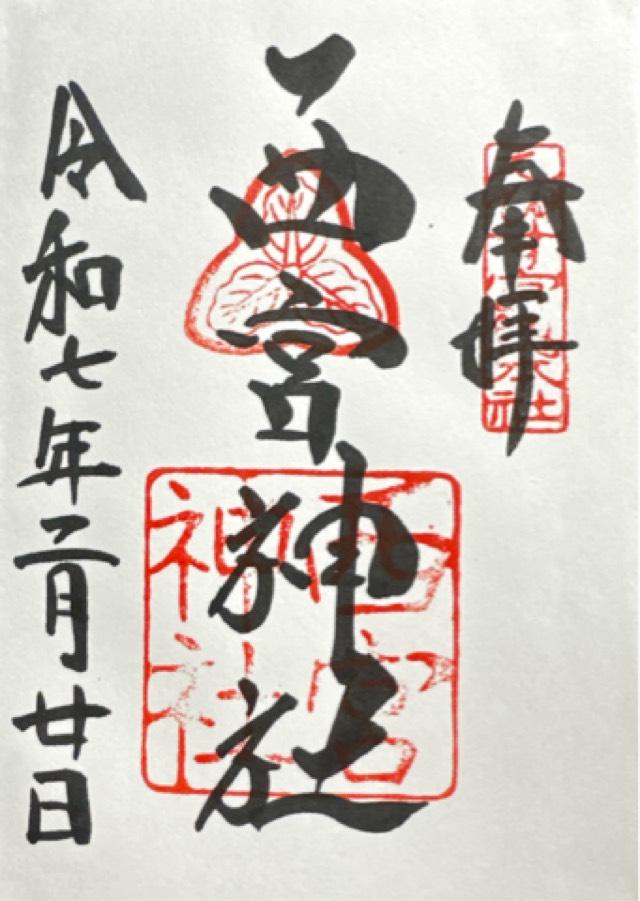 奉拝
西宮神社
西宮
神社
令和七年二月廿日